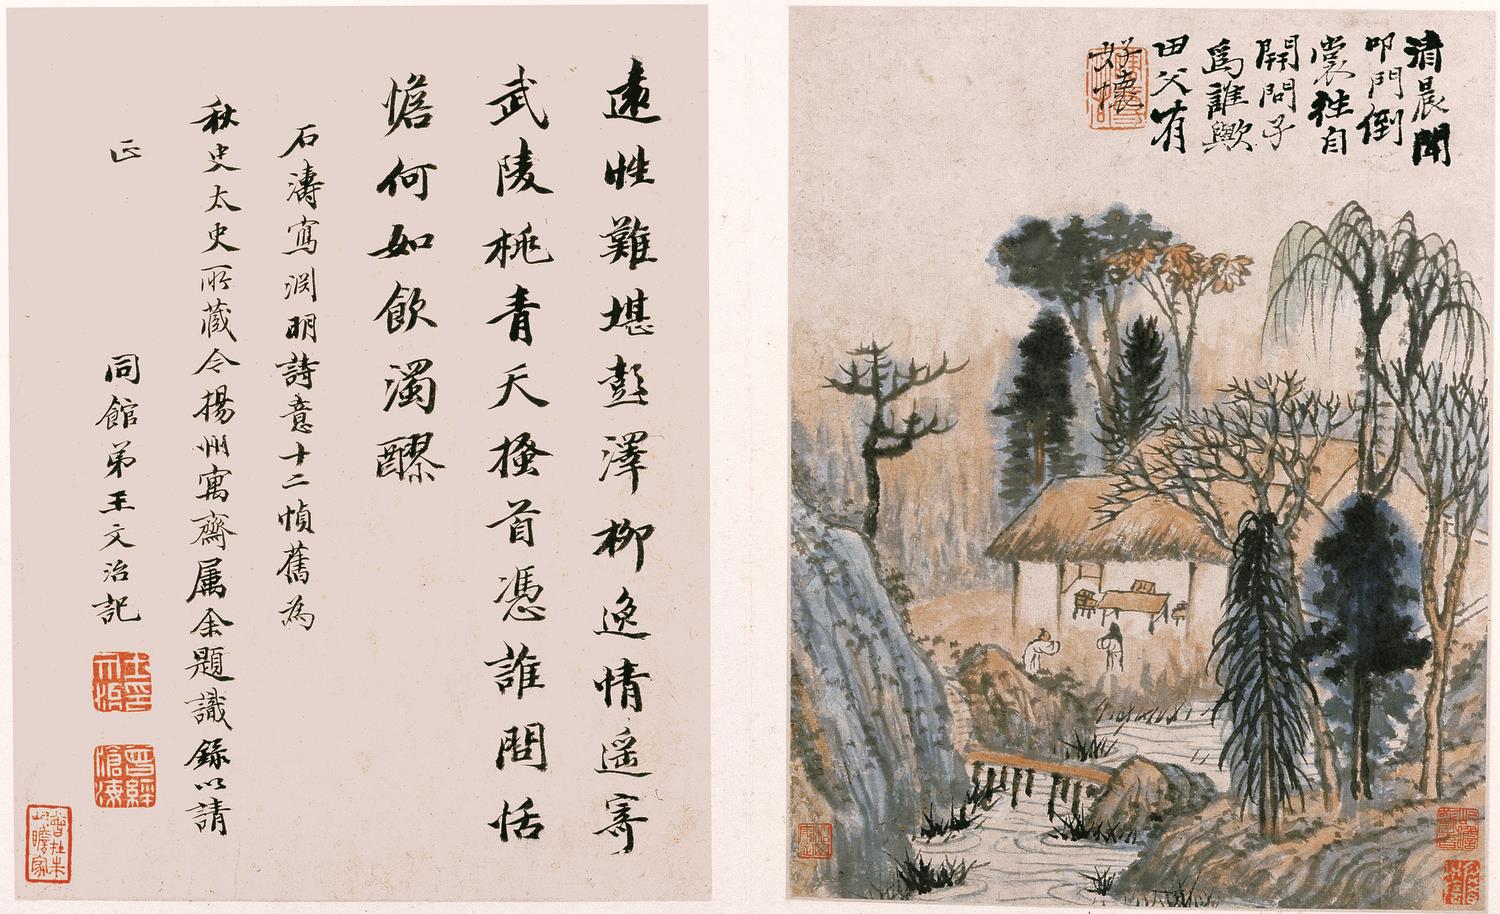 清晨聞
叩門倒
裳往自
開問子
為誰歟
田父有
好懷
遠性難堪彭澤柳逸情遥寄
武陵桃青天搔首憑誰問恬
憺何如飲濁醪
石濤寫淵明詩意十二幀舊為
秋史太史所藏令揚州寓齋属余題識録以請
正
同館弟王文治記